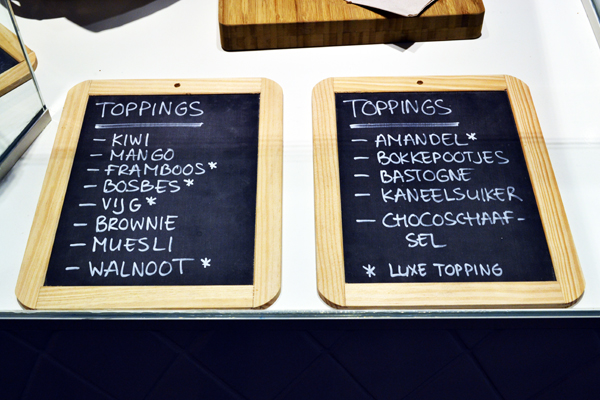 TOPPINGS
- KIWI
- MANGO
- FRAMBOOS*
- BOSBES*
- VIJG*
- BROWNIE
- MUESLI
- WALNOOT *
TOPPINGS
- AMANDEL*
- BOKKEPOOTJES
- BASTOGNE
- KANEELSUIKER
- CHOCOSCHAAF-
SEL
* LUXE TOPPING